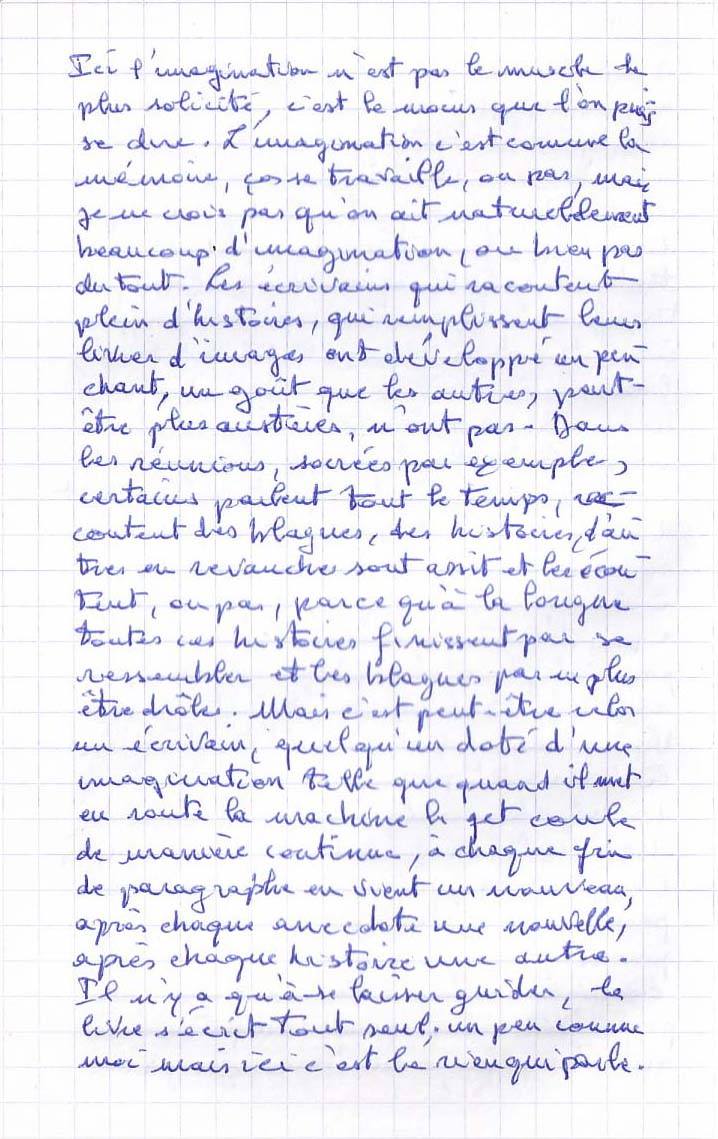 Ici l'imagination n'est pas le muscle le
plus solicité, c'est le moins que l'on puis
se dire. L'imagination c'est comme la
mémoire, ça se travaille, ou pas, mais
je ne crois pas qu'on ait naturellement
beaucoup d'imagination, ou bien pas
du tout. Les écrivains qui racontent
plein d'histoires, qui remplissent leurs
livres d'images ont développé un pen-
chant, un goût que les autres, peut-
être plus austères, n'ont pas. Dans
les réunions, soirées par exemple,
certains parlent tout le temps, ra-
content des blagues, des histoires, d'au
tres en revanche sont assit et les écou-
tent, ou pas, parce qu'à la longue
toutes ces histoires finissent par se
ressembler et les blagues par ne plus
être drôles. Mais c'est peut-être cela
un écrivain, quelqu'un doté d'une
imagination telle que quand il met
en route la machine le jet coule
de manière continue, à chaque fin
de paragraphe en vient un nouveau,
après chaque anecdote une nouvelle,
après chaque histoire une autre.
Il n'y a qu'à se laisser guider, le
livre s'écrit tout seul, un peu comme
moi mais ici c'est le rien qui parle.